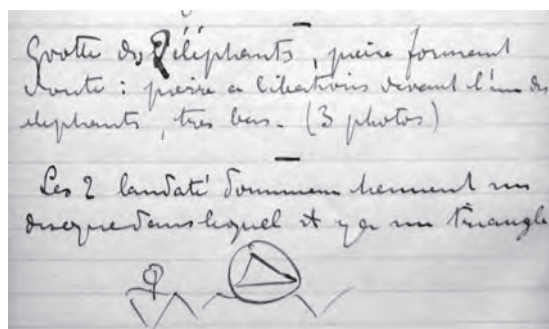 Grotte des 2 éléphants, pierre formant
voute : pierre a libations devant l'un des
elephants, tres bas. (3 photos)
Les 2 tiennent un
disque dans lequel il y a un triangle